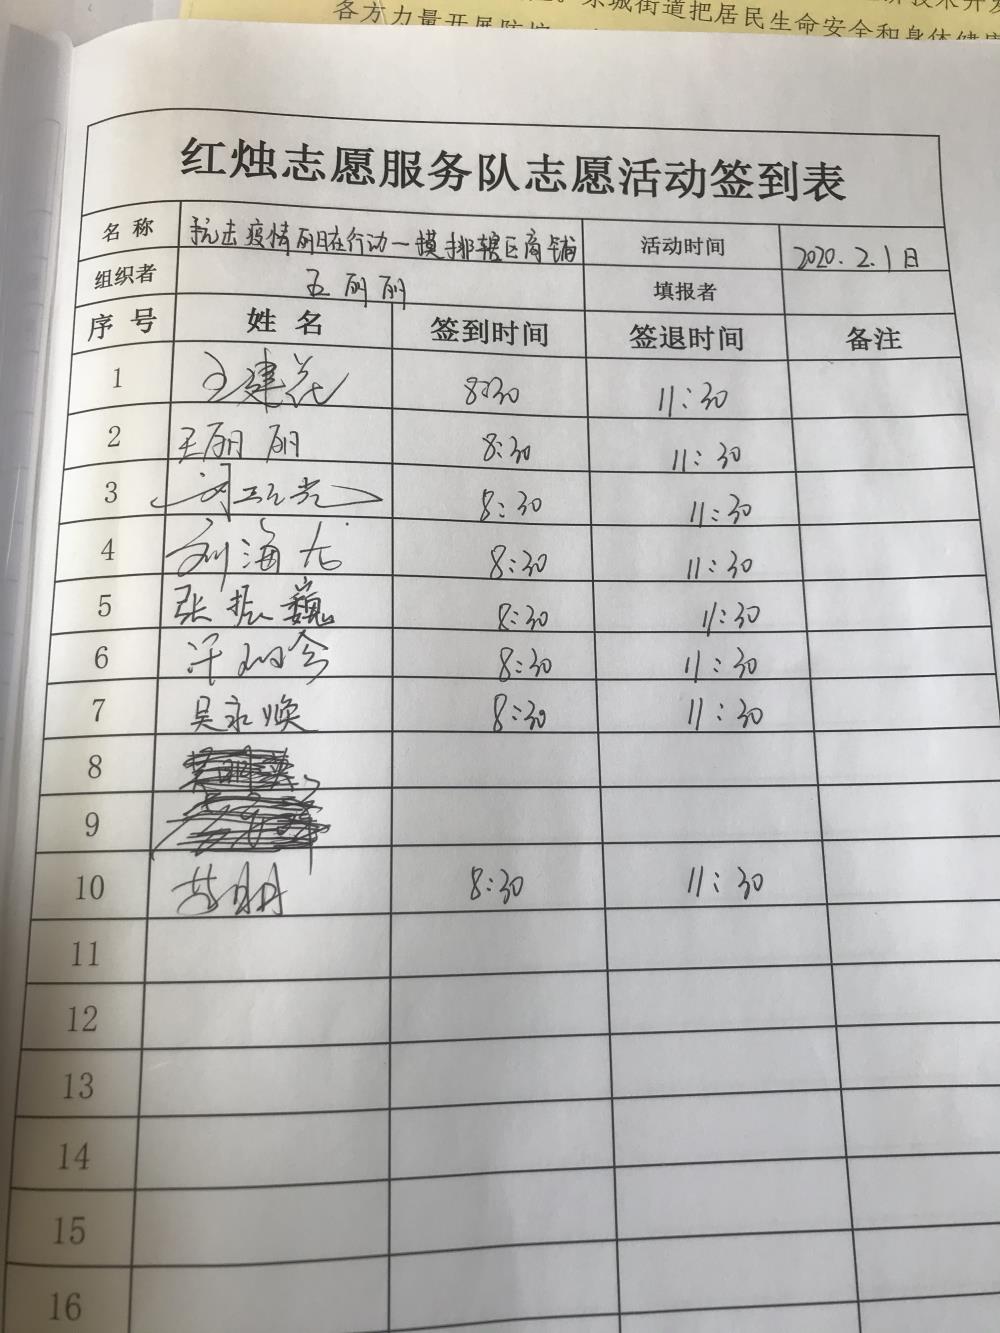 东城街道把居民生命安全和身体健康
各方力量开展防控
红烛志愿服务队志愿活动签到表
名称 抗击疫情 丽日在行动一摸排辖区商铺 活动时间 2020.2.1日
组织者 王丽丽 填报者
序号 姓名 签到时间 签退时间 备注
1 王建花 8:30 11:30
2 王丽丽 8:30 11:30
3 8:30 11:30
4 刘海龙 8:30 11:30
5 张振巍 8:30 11:30
6 8:30 11:30
7 吴永焕 8:30 11:30
8
9
10 8:30 11:30
11
12
13
14
15
16